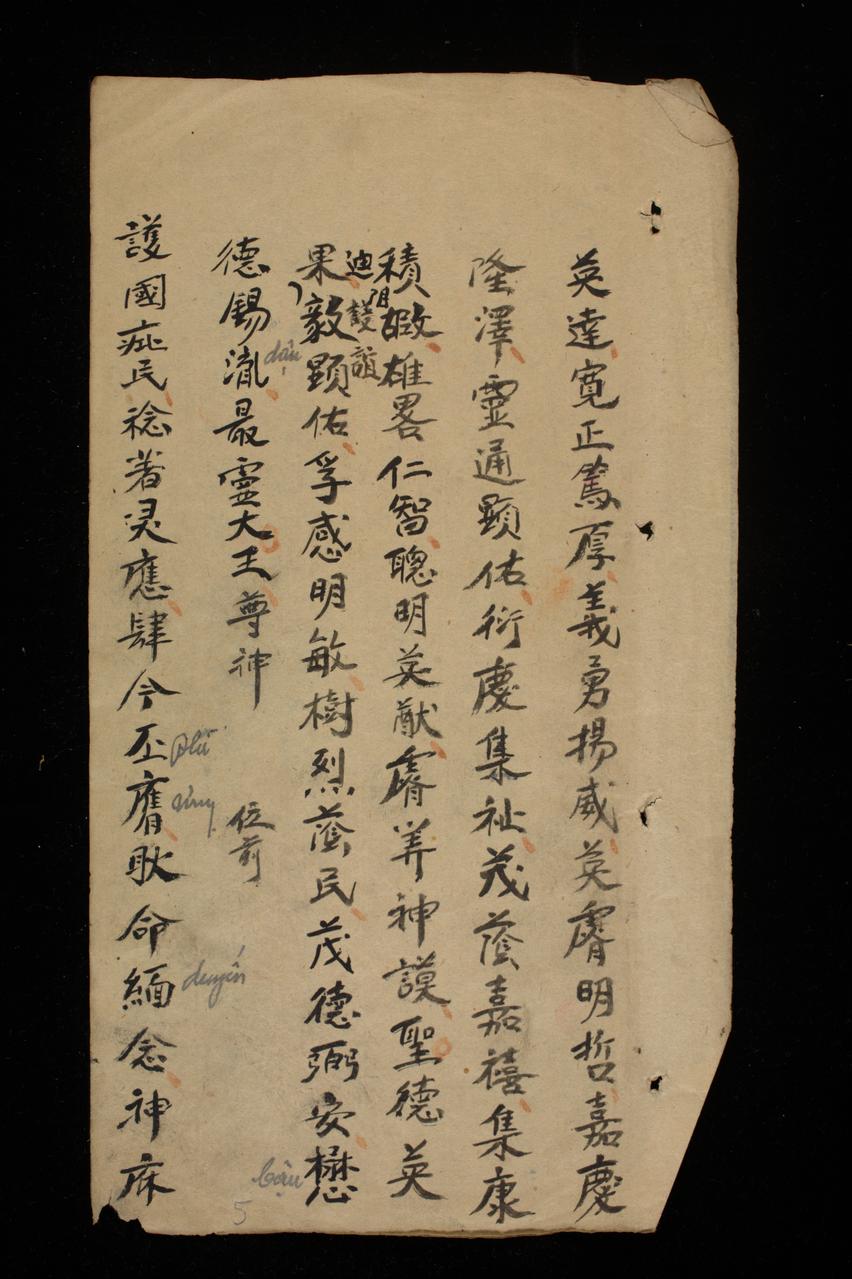 英達寬正篤厚義勇揚威英膚明哲嘉慶
隆澤靈通顯佑衍慶集祉茂蔭嘉禧集康
積嘏雄畧仁智聰明英猷睿筭神謨聖德英
迪謹誼
果毅顯佑孚感明敏樹烈蔭民茂德弼安懋
bậu
德錫胤最霊大王尊神 位前
dận
護國庇民稔著灵應肆今丕膺耿命緬念神庥
phi
ưng
duyến
5